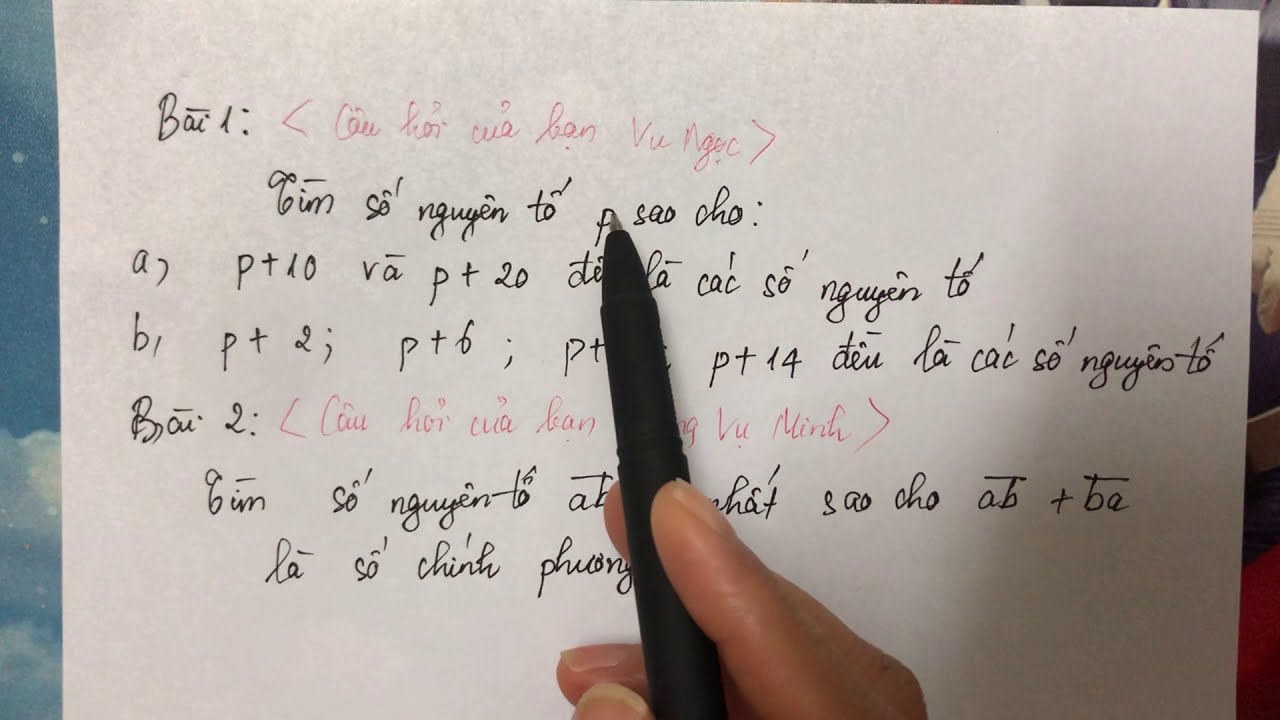 Bài 1: < Câu hỏi của bạn Vu Ngọc >
Tìm số nguyên tố p sao cho:
a, p+10 và p + 20 là các số nguyên tố
b, p + 2; p+6 ; p+ ; p+14 đều là các số nguyên tố
Bài 2: < Câu hỏi của bạn Vu Minh >
Tìm số nguyên tố a̅b̅ nhất sao cho a̅b̅ + b̅a̅
là số chính phương